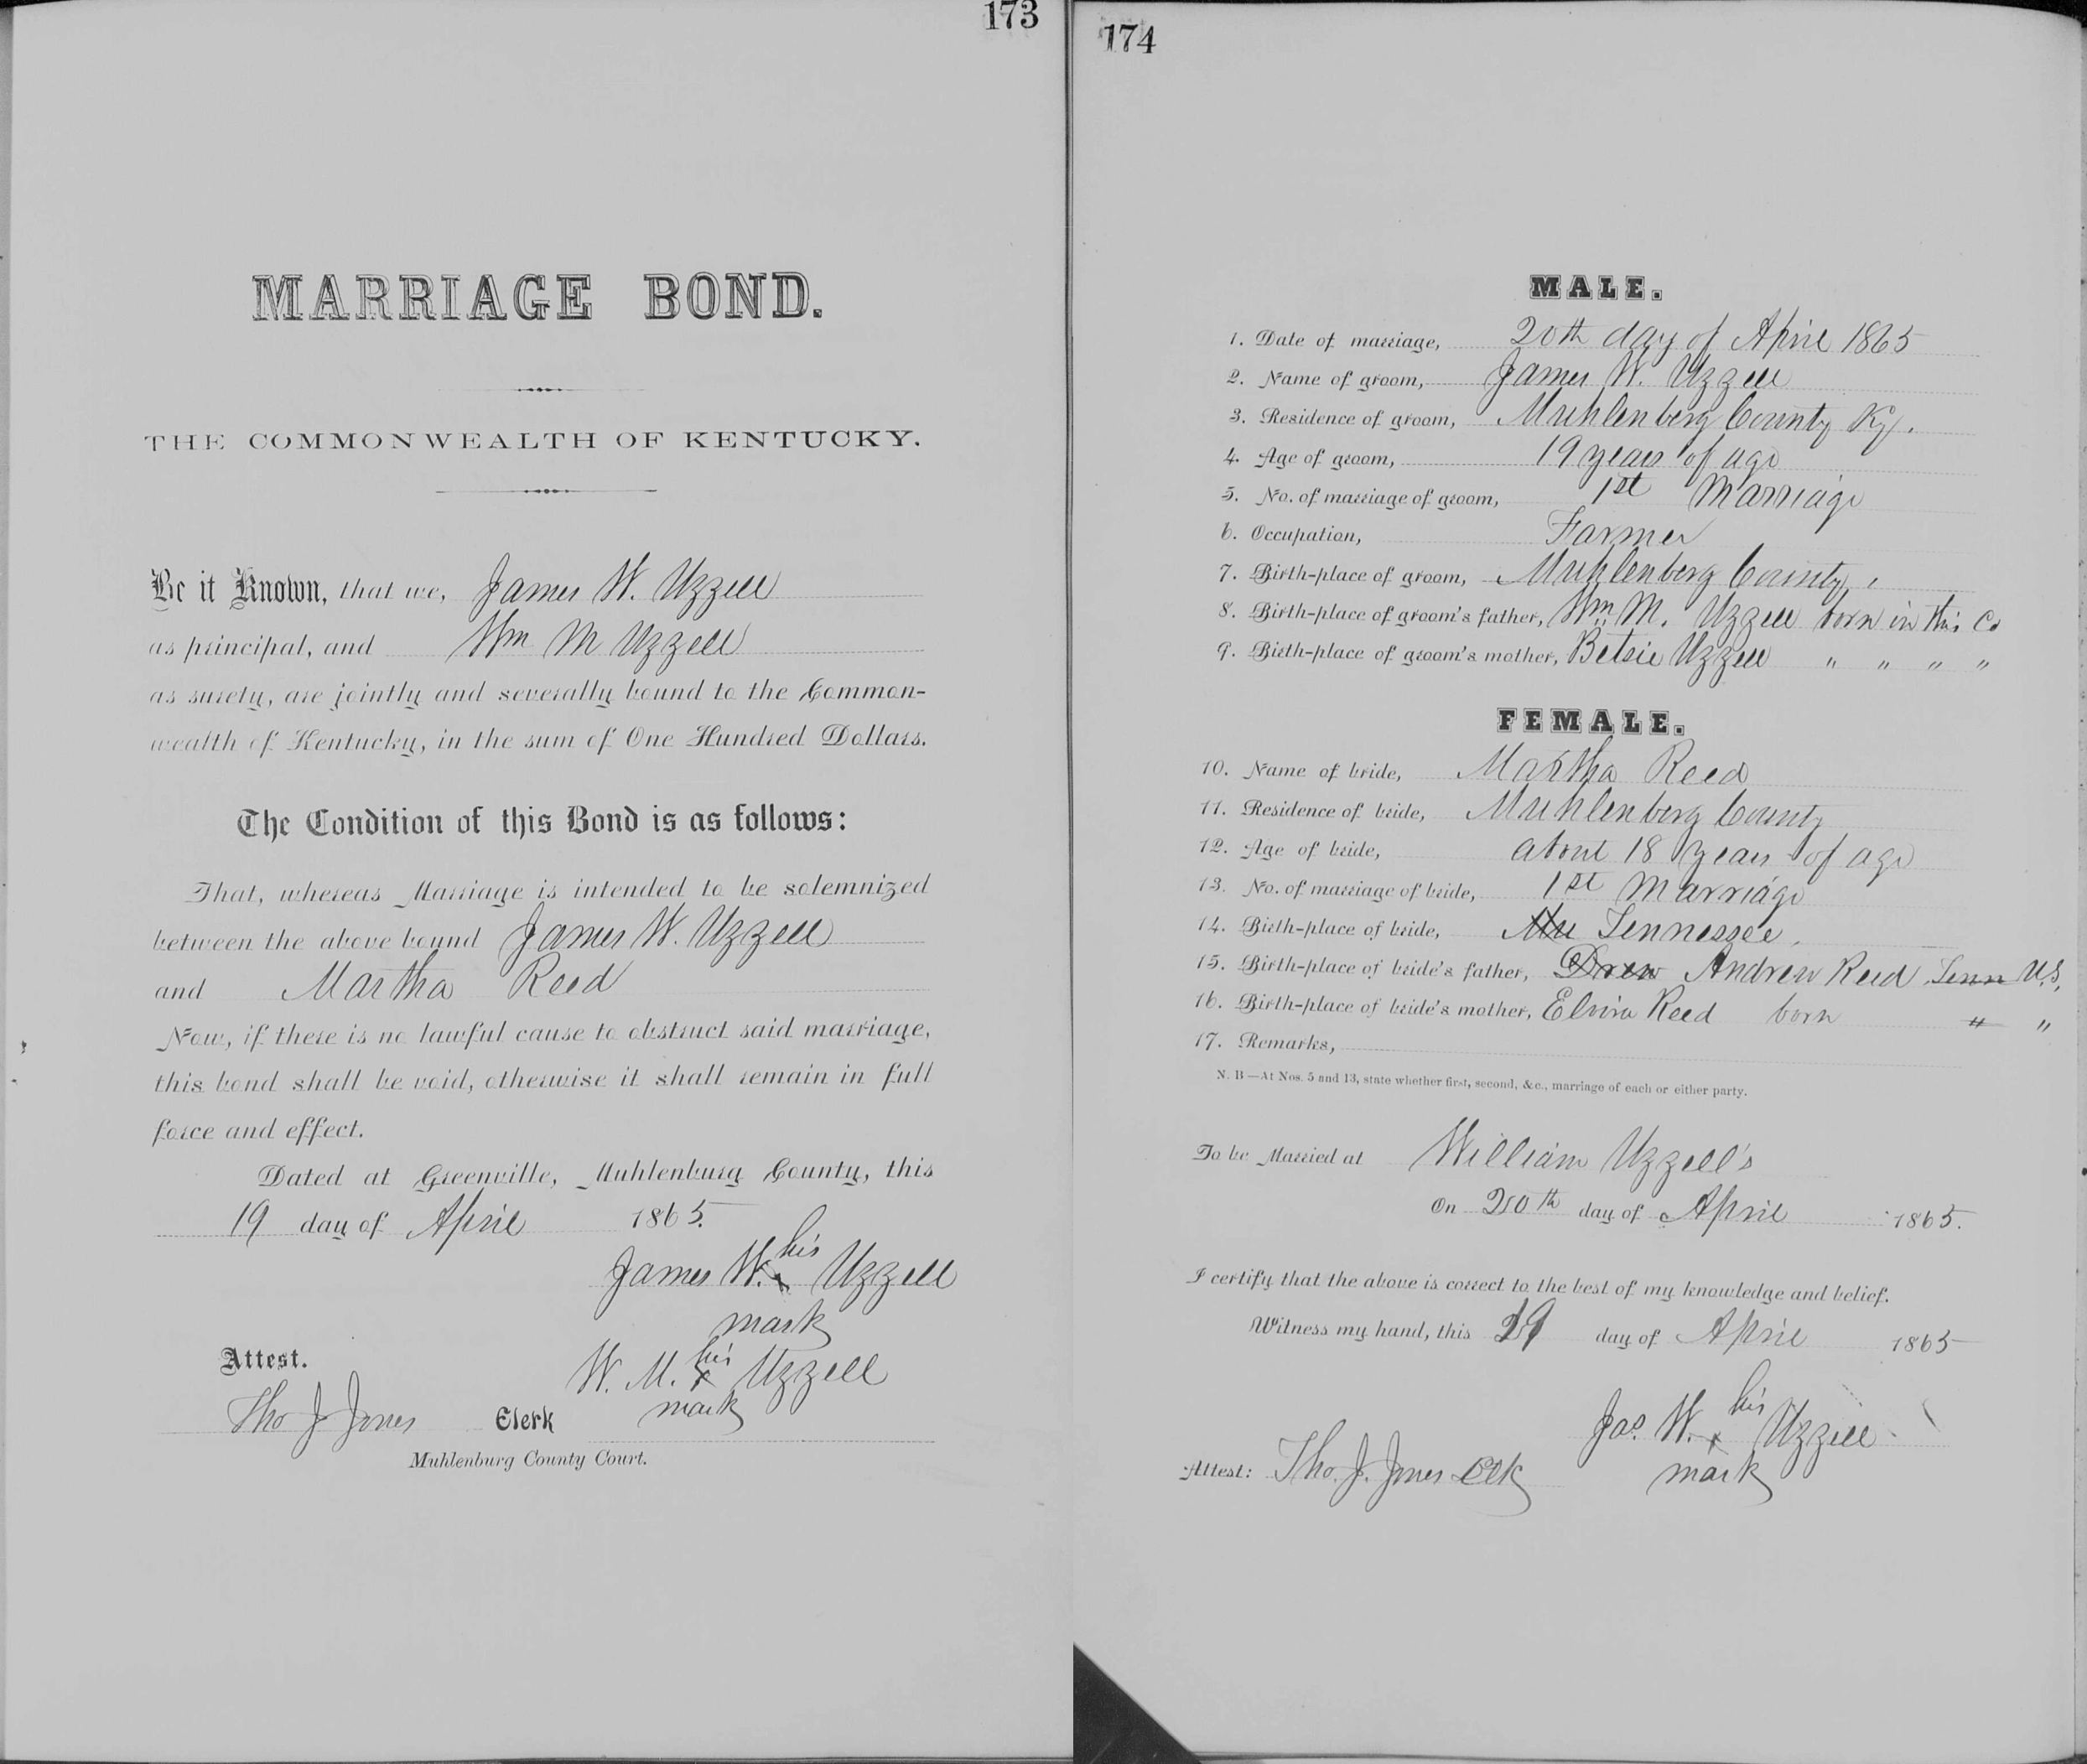 173
MARRIAGE BOND.
THE COMMONWEALTH OF KENTUCKY.
Be it Known, that we, James W. Uzzell
as principal, and Wm M Uzzell
as surety, are jointly and severally bound to the Common-
wealth of Kentucky, in the sum of One Hundred Dollars.
The Condition of this Bond is as follows:
That, whereas Marriage is intended to be solemnized
between the above bound James W. Uzzell
and Martha Reed
Now, if there is no lawful cause to obstruct said marriage,
this bond shall be void, otherwise it shall remain in full
force and effect.
Dated at Greenville, Muhlenburg County, this
19 day of April 1865.
his
James W. x Uzzell
mark
his
W. M. x Uzzell
mark
Attest.
Tho J Jones Clerk
Muhlenburg County Court.
174
MALE.
1. Date of marriage, 20th day of April 1865
2. Name of groom, James W. Uzzell
3. Residence of groom, Muhlenberg County Ky.
4. Age of groom, 19 years of age
5. No. of marriage of groom, 1st Marriage
6. Occupation, Farmer
7. Birth-place of groom, Muhlenberg County,
8. Birth-place of groom's father, Wm. M. Uzzell born in this Co
9. Birth-place of groom's mother, Betsie Uzzell " " " "
FEMALE.
10. Name of bride, Martha Reed
11. Residence of bride, Muhlenberg County
12. Age of bride, about 18 years of age
13. No. of marriage of bride, 1st Marriage
14. Birth-place of bride, Mu Tennessee,
15. Birth-place of bride's father, Drew Andrew Reed Tenn U.S.
16. Birth-place of bride's mother, Elvira Reed born " "
17. Remarks,
N. B—At Nos. 5 and 13, state whether first, second, &c., marriage of each or either party.
To be Married at William Uzzell's
On 20th day of April 1865.
I certify that the above is correct to the best of my knowledge and belief.
Witness my hand, this 19 day of April 1865
his
Jas. W. x Uzzell
mark
Attest: Tho. J. Jones Clk